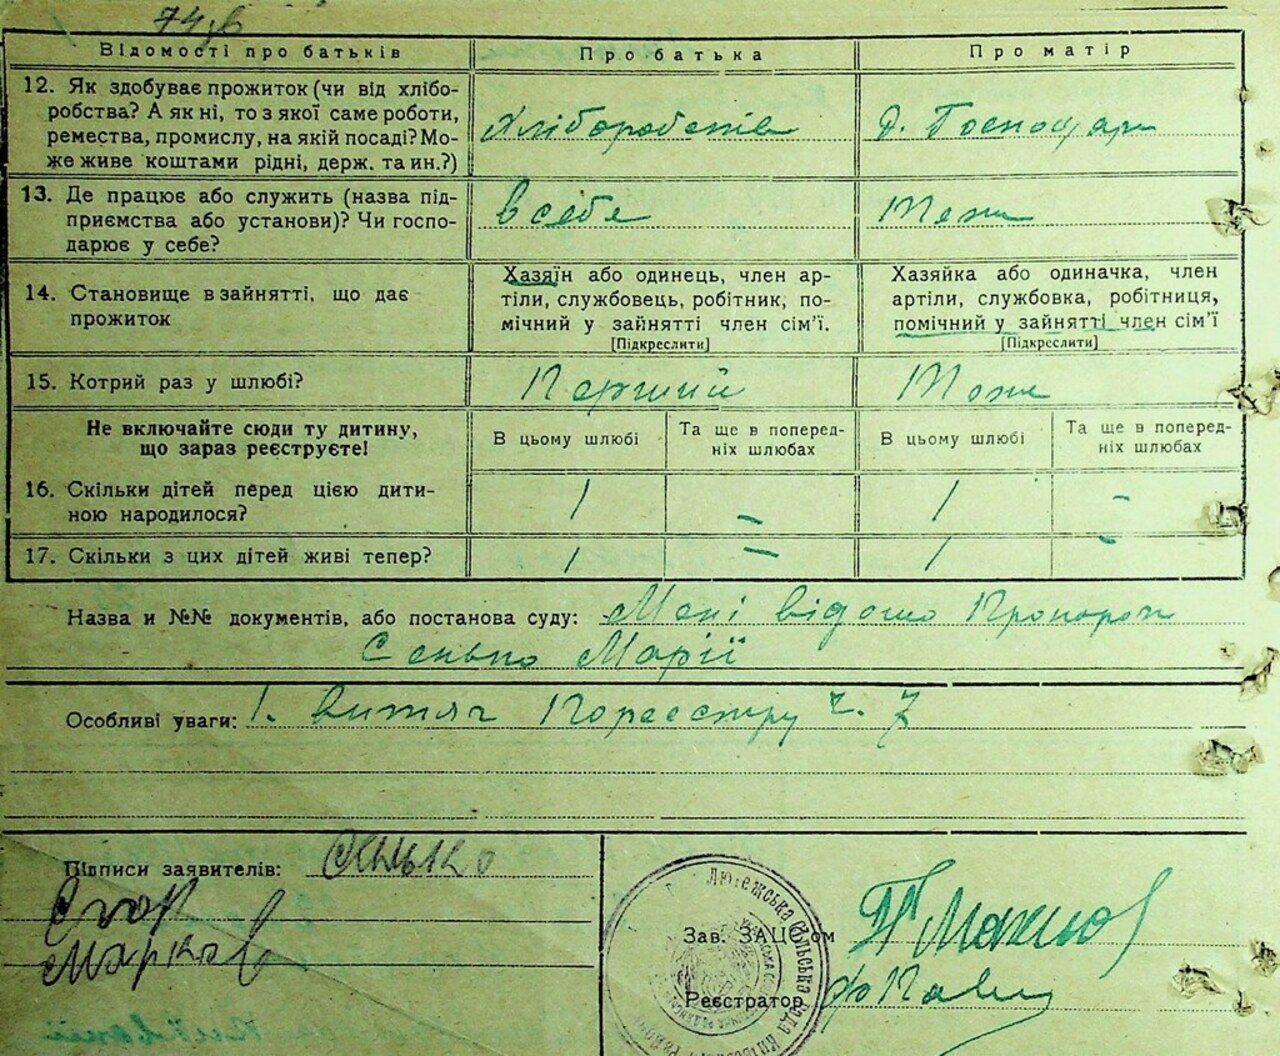 74зв
Відомості про батьків
Про батька
Про матір
12. Як здобуває прожиток (чи від хлібо-
робства? А як ні, то з якої саме роботи,
ремества, промислу, на якій посаді? Мо-
же живе коштами рідні, держ. та ин.?)
Хліборобств
д. Господар
13. Де працює або служить (назва під-
приємства або установи)? Чи госпо-
дарює у себе?
в себе
Теж
14. Становище в зайнятті, що дає
прожиток
Хазяїн або одинець, член ар-
тіли, службовець, робітник, по-
мічний у зайнятті член сім’ї.
[Підкреслити]
Хазяйка або одиначка, член
артіли, службовка, робітниця,
помічний у зайнятті член сім’ї
[Підкреслити]
15. Котрий раз у шлюбі?
Перший
Тож
Не включайте сюди ту дитину,
що зараз реєструєте!
В цьому шлюбі
Та ще в поперед-
ніх шлюбах
В цьому шлюбі
Та ще в поперед-
ніх шлюбах
16. Скільки дітей перед цією дити-
ною народилося?
1
–
1
–
17. Скільки з цих дітей живі тепер?
1
–
1
–
Назва и №№ документів, або постанова суду: Мені відомо
Сенько Марії
Особливі уваги: 1. витяг По реєстру ч. 7
Підписи заявителів: Сенько
Єгор
Марков
Зав. ЗАЦСом
Реєстратор
Лютежська Сільська Рада